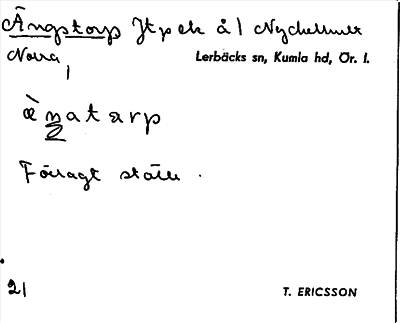 Ängstorp Jtp ek å | Nyckelhult
Norra, Lerbäcks sn, Kumla hd, Ör. l.
ænatarp
Föreagt ställe.
21 T. ERICSSON